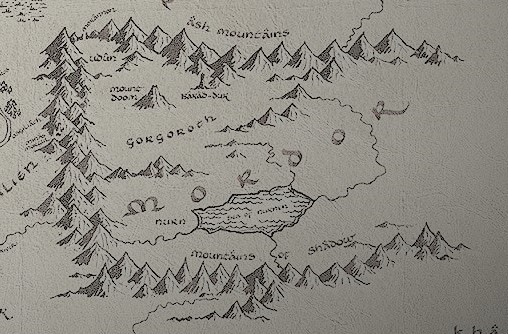 morannon
ash mountains
udûn
mount
doom
barad-dûr
gorgoroth
mordor
nurn
sea of nurnen
mountains of shadow
khâ